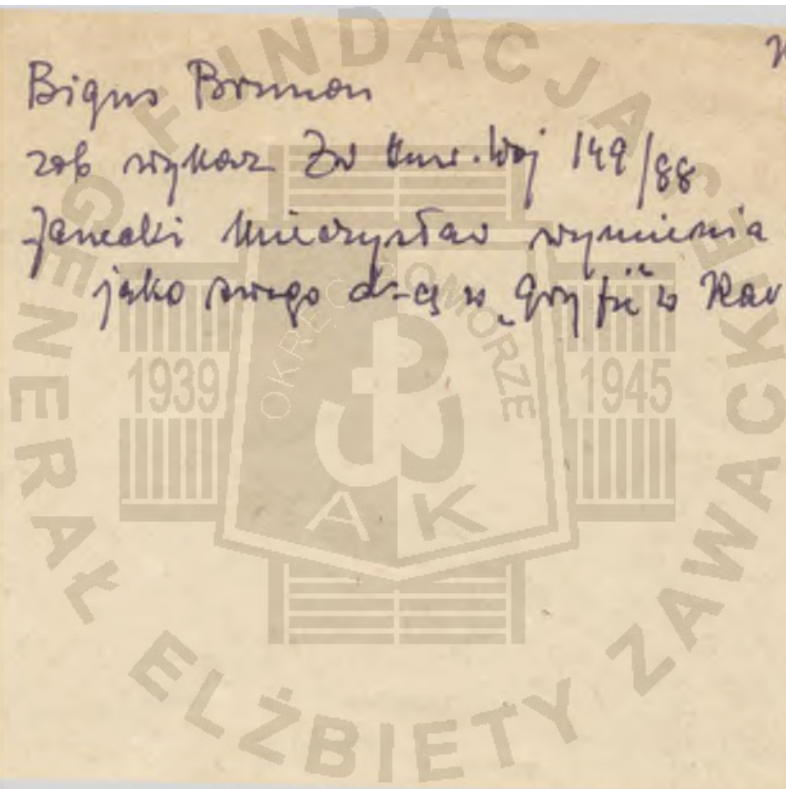 Bigus Brunon
zob wykaz Zw Kur. Woj 149/88
Janecki Mieczysław wymienia
jako swego d-cę w „Gryfie" w
FUNDACJA GENERAŁ ELŻBIETY ZAWACKIEJ
OKRĘG POMORZE
1939 1945
AK